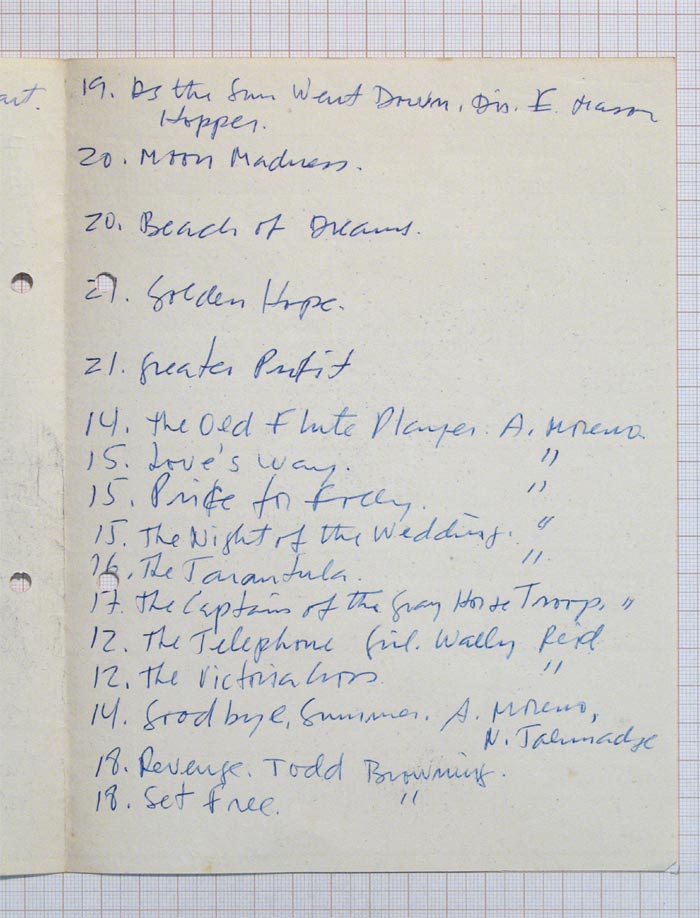 art.
19. As the Sun Went Down, Dir. E. Mason
Hopper.
20. Moon Madness.
20. Beach of Dreams.
21. Golden Hope.
21. Greater Profit
14. The Old Flute Player. A. Moreno
15. Love's Way. "
15. Price for Folly. "
15. The Night of the Wedding. "
16. The Tarantula. "
17. The Captain of the Gray Horse Troop, "
12. The Telephone Girl. Wally Reid
12. The Victoria Cross "
14. Goodbye, Summer. A. Moreno,
N. Talmadge
18. Revenge. Todd Browning.
18. Set Free. "